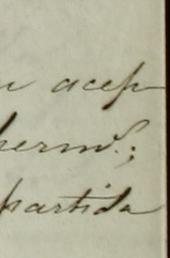 acep
herm.º;
partida